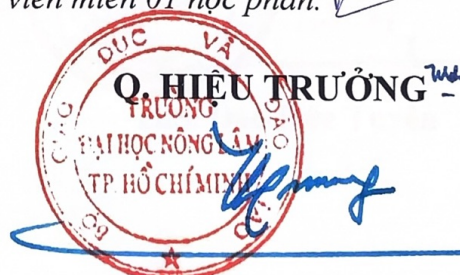 viên miễn 01 học phần.
Q. HIỆU TRƯỞNG
BỘ GIÁO DỤC VÀ ĐÀO TẠO
TRƯỜNG
ĐẠI HỌC NÔNG LÂM
TP. HỒ CHÍ MINH